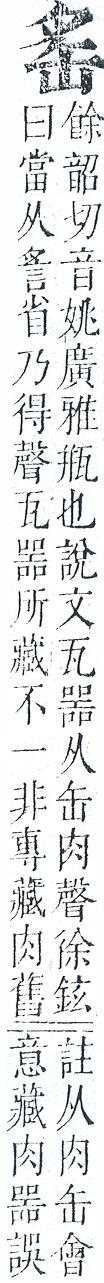 䍃
餘韶切音姚廣雅瓶也說文瓦噐从缶肉聲徐鉉
曰當从䚻省乃得聲瓦噐所藏不一非專藏肉舊
註从肉缶會
意藏肉噐誤